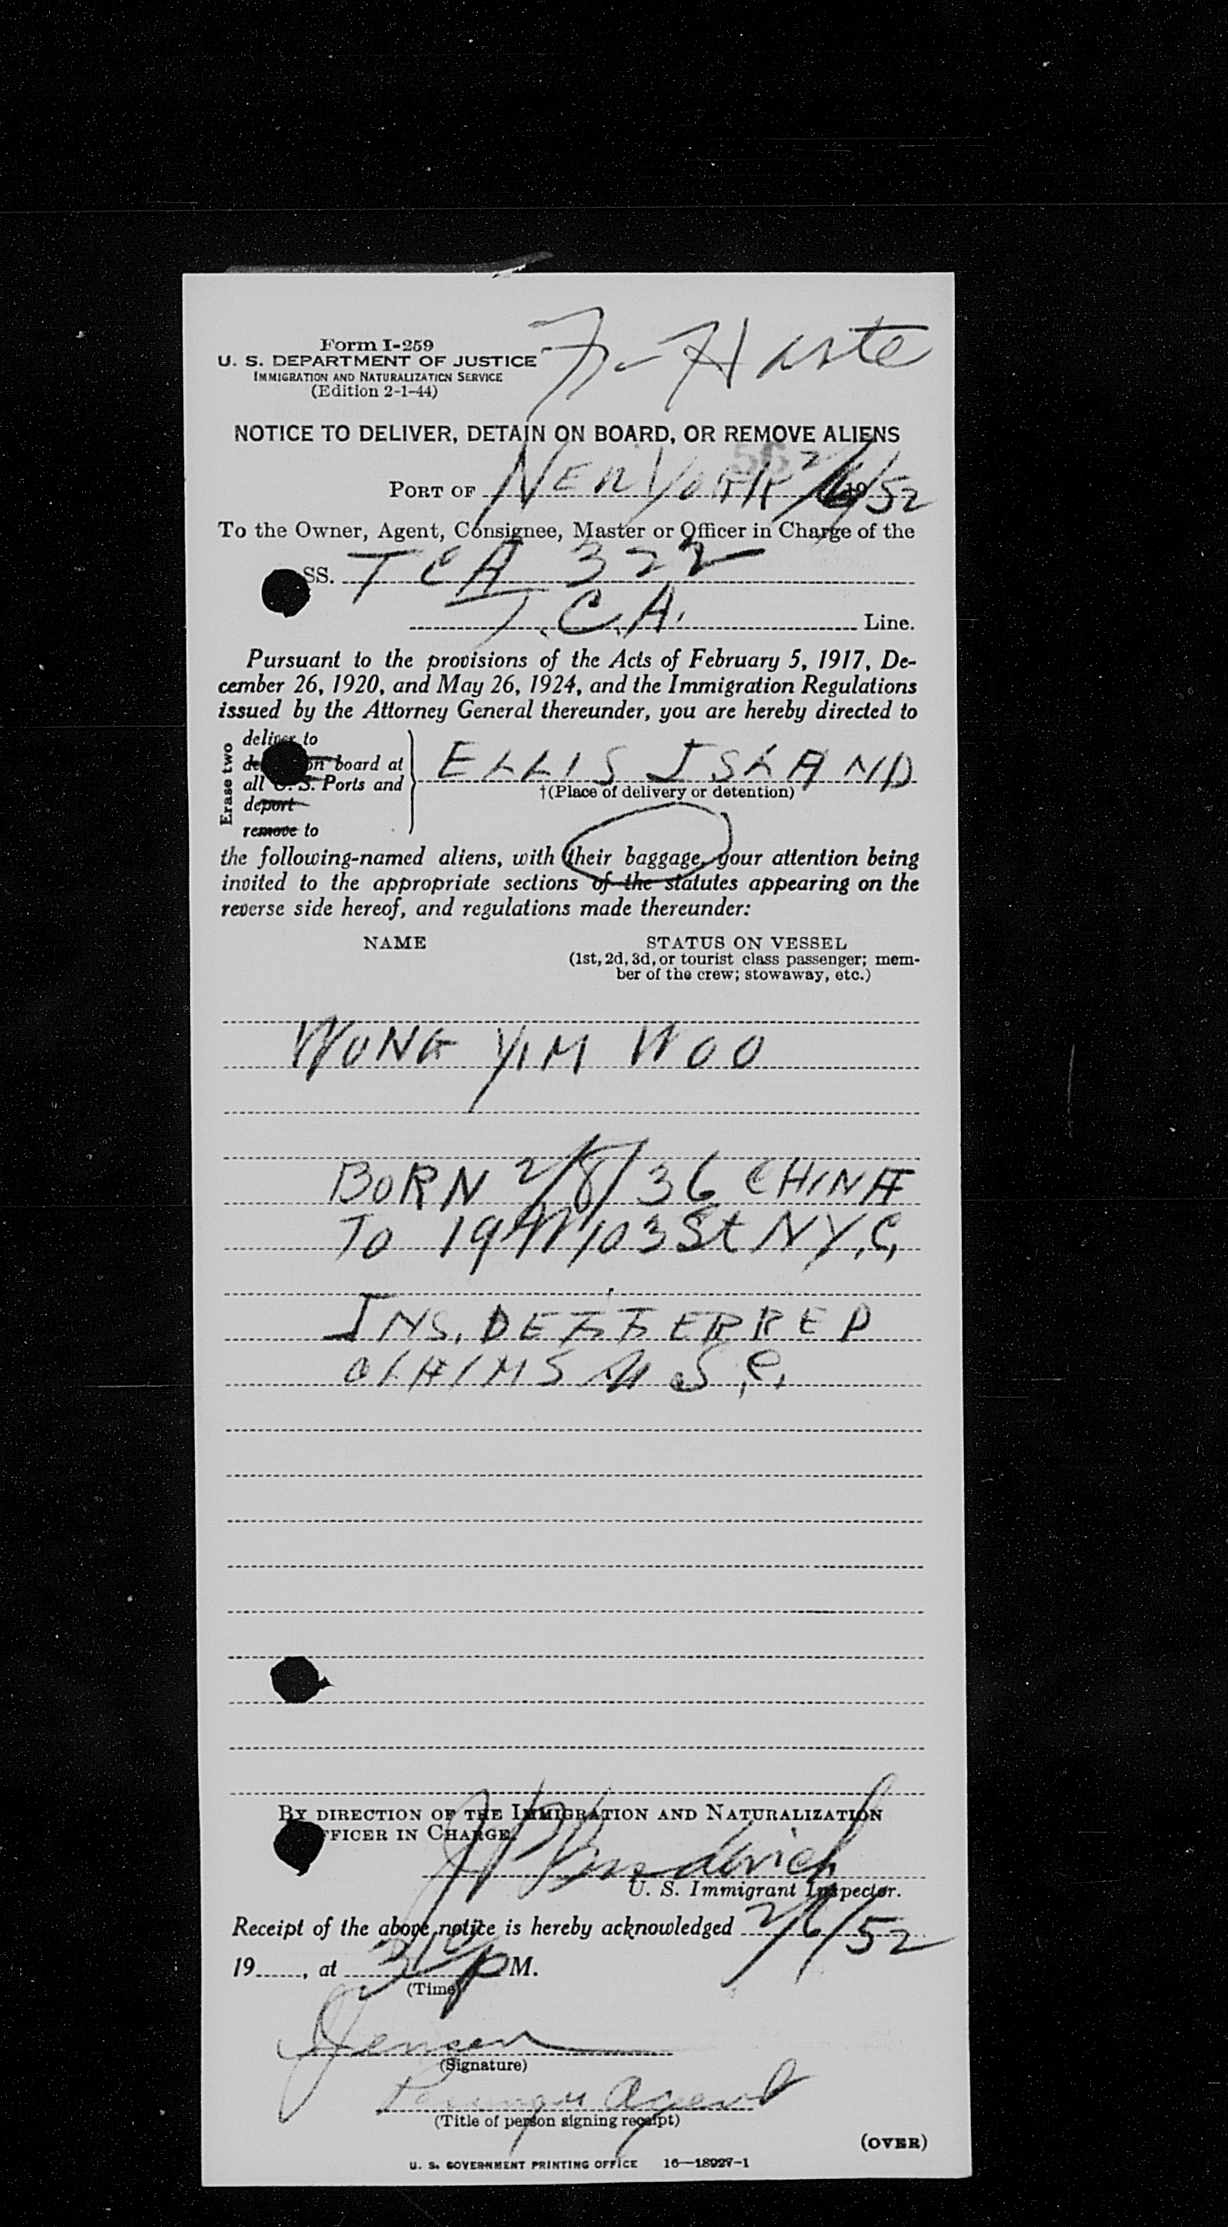 Form I-259
U. S. DEPARTMENT OF JUSTICE
IMMIGRATION AND NATURALIZATION SERVICE
(Edition 2-1-44)
NOTICE TO DELIVER, DETAIN ON BOARD, OR REMOVE ALIENS
PORT OF NEW YORK 2/6/52
To the Owner, Agent, Consignee, Master or Officer in Charge of the
SS. TCA 322
T.C.A. Line.
Pursuant to the provisions of the Acts of February 5, 1917, De-
cember 26, 1920, and May 26, 1924, and the Immigration Regulations
issued by the Attorney General thereunder, you are hereby directed to
Erase two
deliver to
on board at
all U. S. Ports and
deport
remove to
ELLIS ISLAND
†(Place of delivery or detention)
the following-named aliens, with their baggage, your attention being
invited to the appropriate sections of the statutes appearing on the
reverse side hereof, and regulations made thereunder:
NAME STATUS ON VESSEL
(1st, 2d, 3d, or tourist class passenger; mem-
ber of the crew; stowaway, etc.)
WONG YIM WOO
BORN 2/8/36 CHINA
TO 19 W 103 St N.Y.C.
INS. DEFFERRED
CLAIMS U.S.C.
BY DIRECTION OF THE IMMIGRATION AND NATURALIZATION
OFFICER IN CHARGE.
U. S. Immigrant Inspector.
Receipt of the above notice is hereby acknowledged 2/6/52
19 , at P M.
(Time)
Jensen
(Signature)
Agent
(Title of person signing receipt)
(OVER)
U. S. GOVERNMENT PRINTING OFFICE 16—18927-1